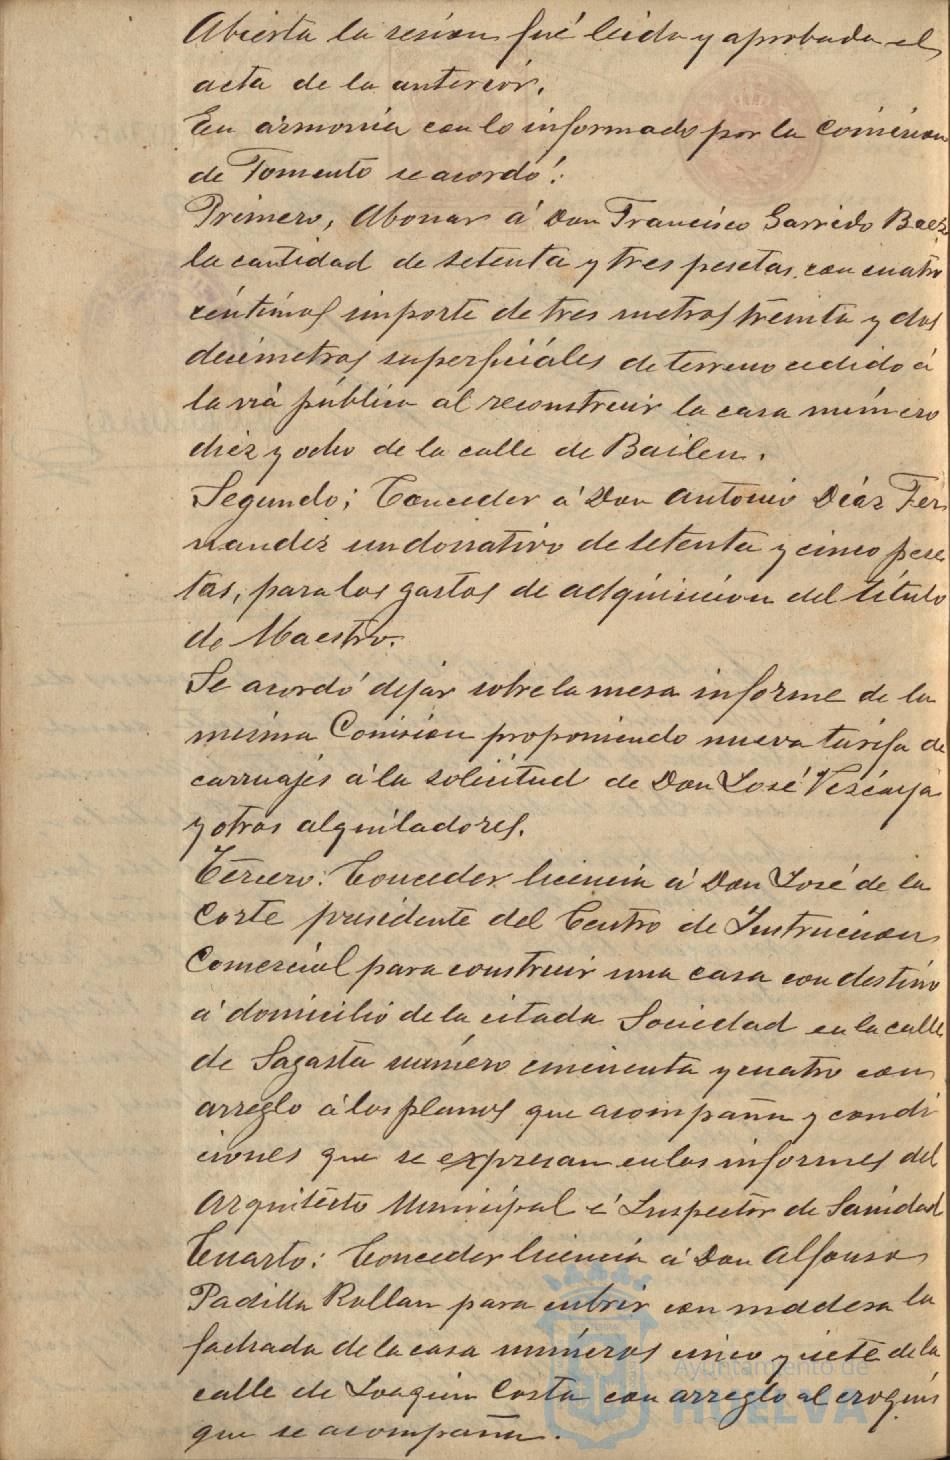 Abierta la sesion fué leida y aprobada el
acta de la anterior.
En armonia con lo informado por la Comision
de Fomento se acordó:
Primero, Abonar á Don Francisco Garrido Baez
la cantidad de setenta y tres pesetas con cuatro
céntimos importe de tres metros treinta y dos
decimetros superficiales de terreno cedido á
la via pública al reconstruir la casa número
diez y ocho de la calle de Bailen.
Segundo; Conceder á Don Antonio Diaz Fer
nandez un donativo de setenta y cinco pese
tas, para los gastos de adquisicion del titulo
de Maestro.
Se acordó dejar sobre la mesa informe de la
misma Comision proponiendo nueva tarifa de
carruajes á la solicitud de Don José Vizcaya
y otros alquiladores.
Tercero: Conceder licencia á Don José de la
Corte presidente del Centro de Instruccion
Comercial para construir una casa con destino
á domicilio de la citada Sociedad en la calle
de Sagasta número cincuenta y cuatro con
arreglo á los planos que acompaña y condi
ciones que se expresan en los informes del
Arquitecto Municipal é Inspector de Sanidad
Cuarto: Conceder licencia á Don Alfonso
Padilla Rollan para cubrir con madera la
fachada de la casa números cinco y siete de la
calle de Joaquin Costa con arreglo al croquis
que se acompaña.
Ayuntamiento de
HUELVA